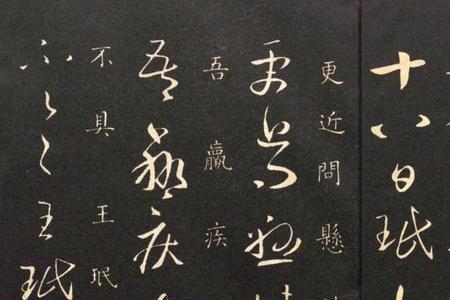 十八日珉
更近問懸
更近問懸
吾羸疾
吾羸疾
不具王珉
不具王珉